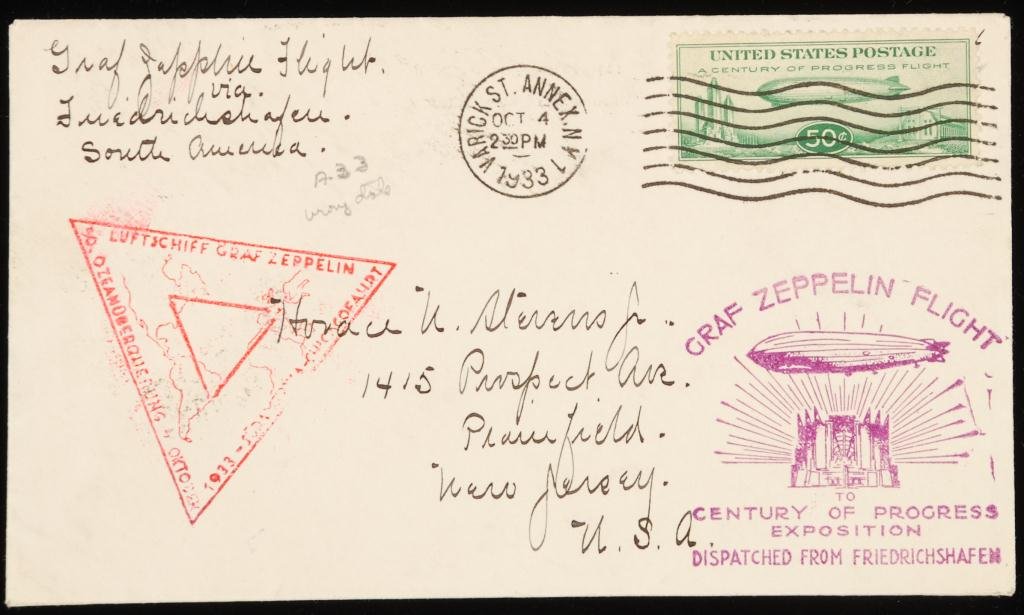 Graf Zapplin Flight.
via.
Friedrichshafen.
South America.
A-33
wrong date
VARICK ST. ANNEX. N.Y.
OCT 4
2 30 PM
1933
1
UNITED STATES POSTAGE
A CENTURY OF PROGRESS FLIGHT
50¢
LUFTSCHIFF GRAF ZEPPELIN
50. OZEANÜBERQUERUNG, OKTOBER
1933 - CHICAGOFAHRT
Horace N. Stevens Jr.
1415 Prospect Ave.
Plainfield.
New Jersey.
U. S. A.
GRAF ZEPPELIN FLIGHT
TO
CENTURY OF PROGRESS
EXPOSITION
DISPATCHED FROM FRIEDRICHSHAFEN